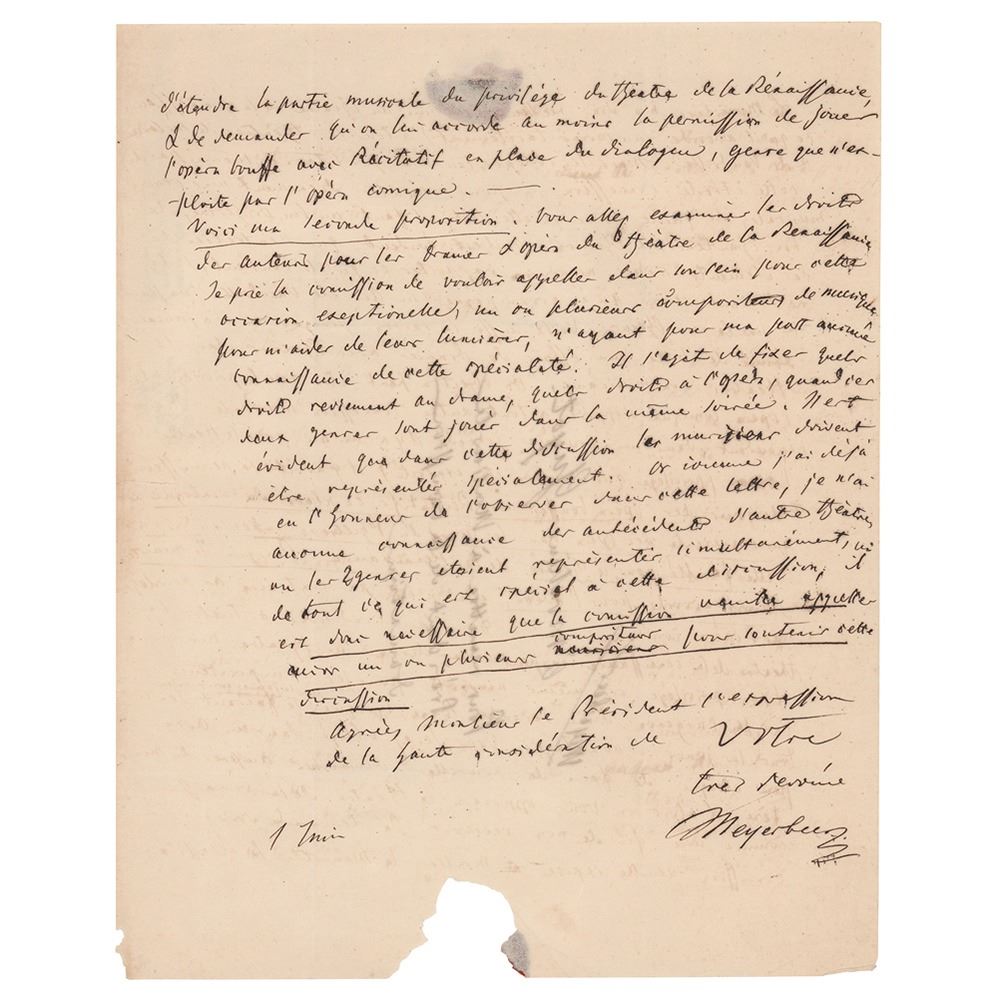 d'étendre la partie musicale du privilége du théatre de la Rénaissance,
& de demander qu'on lui accorde au moins la permission de jouer
l'opéra bouffe avec Récitatif en place du dialogue, genre que n'ex-
-ploite par l'opéra comique. —
Voici ma seconde proposition. Vous allez examiner les droits
des auteurs pour les Drames & opéras du théâtre de la Renaissance
Je prie la comission de vouloir appeller dans son sein pour cette
occasion exeptionelle, un ou plusieurs compositeurs de musique
pour m'aider de leurs lumières, n'ayant pour ma part aucune
connaissance de cette spécialaté. Il s'agit de fixer quels
droits reviennent au drame, quels droits à l'opéra, quand ces
deux genres sont joués dans la même soirée. Il est
évident que dans cette discussion les musiciens doivent
être représentés spécialement. Or comme j'ai déjà
eu l'honneur de l'observer dans cette lettre, je n'ai
aucune connaissance des antécédents d'autre théâtres
ou les 2 genres etoient représentés simultanément, ni
de tout ce qui est spécial à cette discussion, il
est donc nécessaire que la comission veuille appeller
un ou plusieurs compositeurs pour soutenir cette
discussion
Agréés Monsieur le Président l'expression
de la haute considération de Votre
tres devoué
1 Juin Meyerbeer